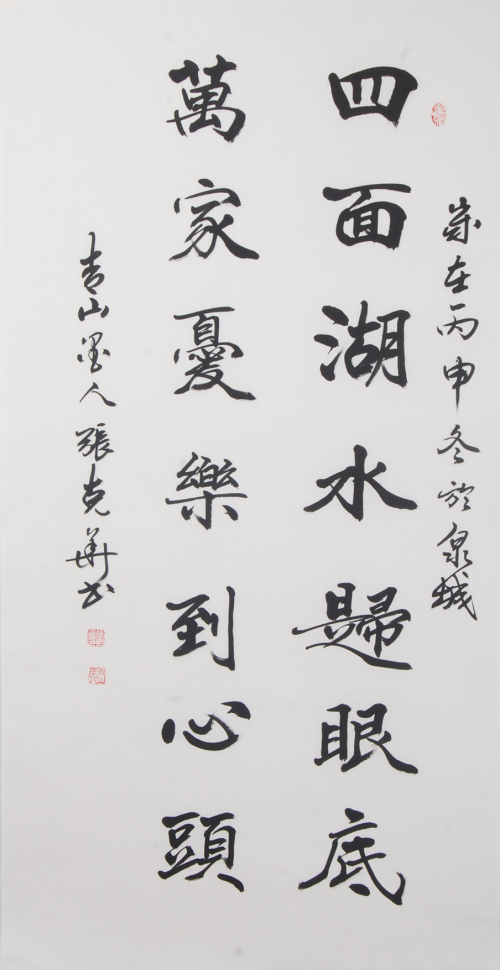 歲在丙申冬於泉城
四面湖水歸眼底
萬家憂樂到心頭
青山墨人張克華書